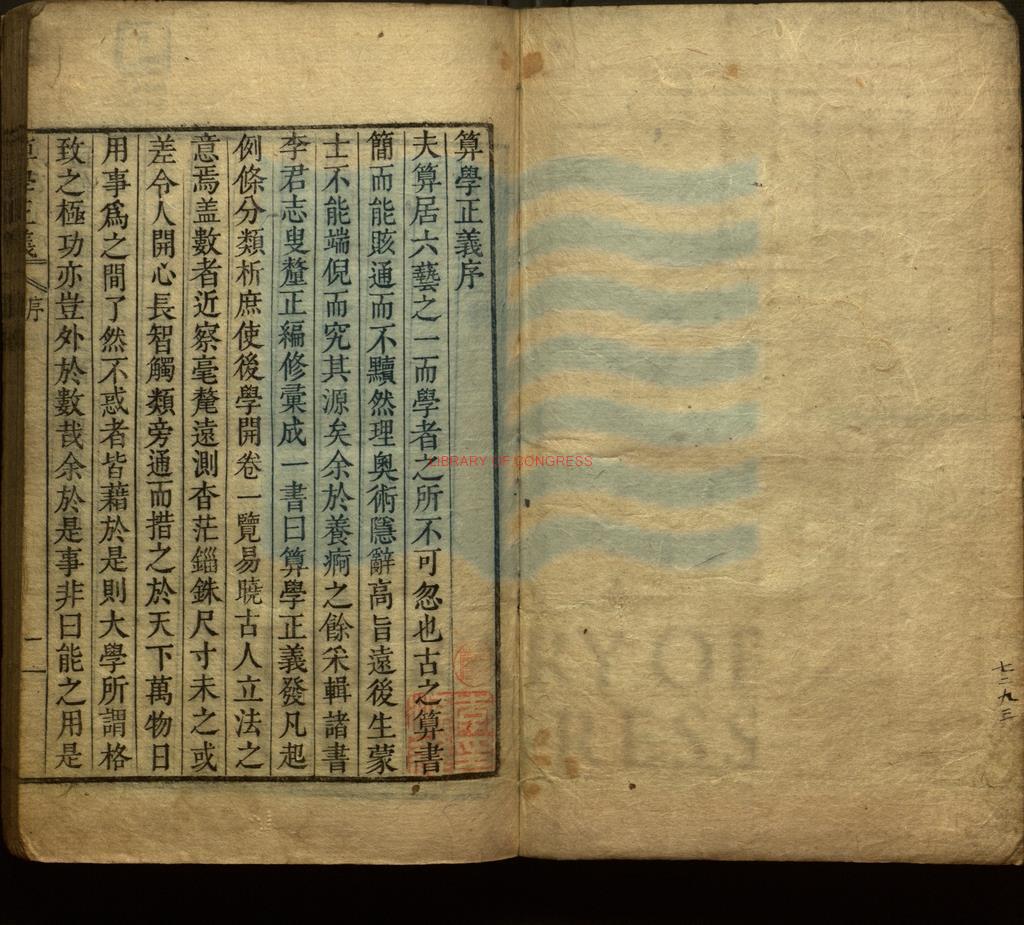 算學正義序
夫算居六藝之一而學者之所不可忽也古之算書
簡而能賅通而不黷然理奧術隱辭高旨遠後生蒙
士不能端倪而究其源矣余於養痾之餘采輯諸書
李君志叟釐正編修彙成一書曰算學正義發凡起
例條分類析庶使後學開卷一覽易曉古人立法之
意焉盖數者近察毫氂遠測杳茫錙銖尺寸未之或
差令人開心長智觸類旁通而措之於天下萬物日
用事爲之間了然不惑者皆藉於是則大學所謂格
致之極功亦豈外於數哉余於是事非曰能之用是
算學正義 序 一
LIBRARY OF CONGRESS
七二九三